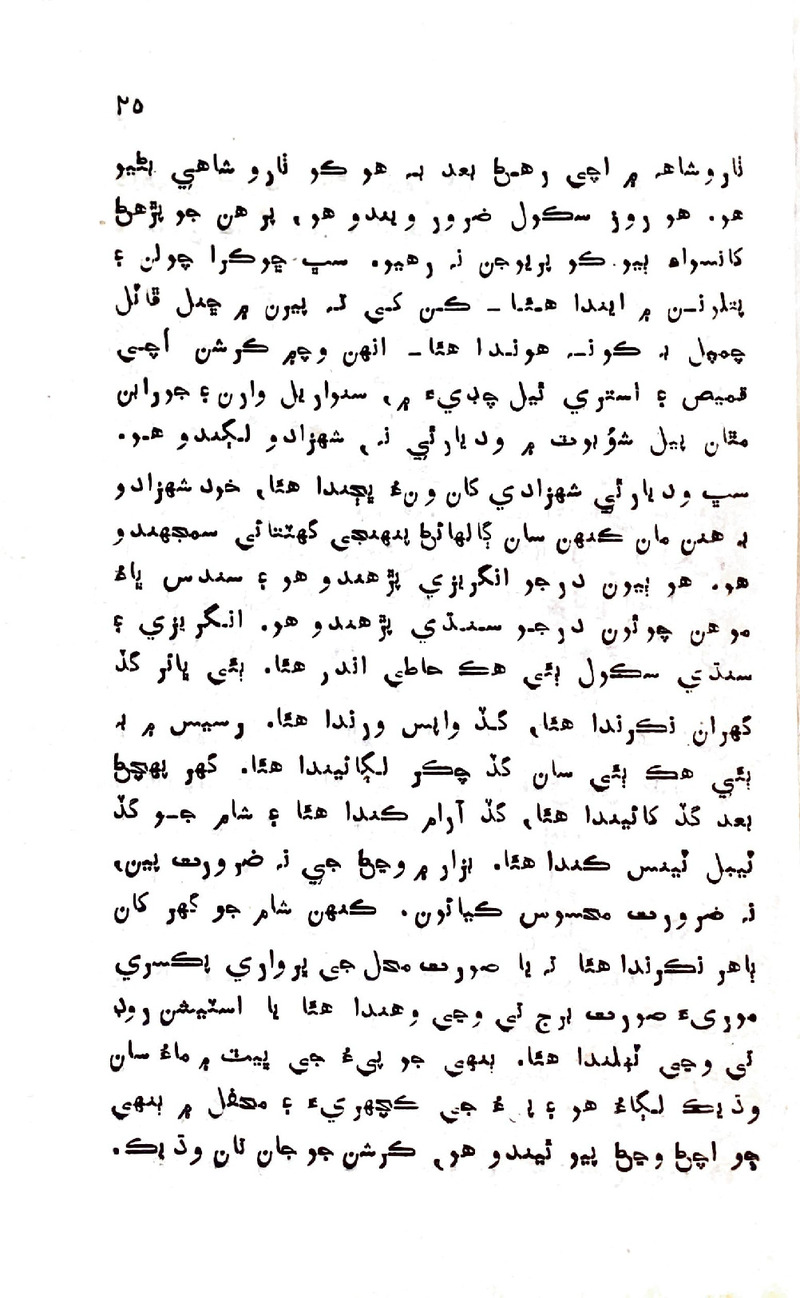 ٢٥
ناروشاهہ ۾ اچي رهڻ بعد بہ هو ڪو نارو شاهي بڻيو
هو. هو روز سڪول ضرور ويندو هو، پر هن جو پڙهڻ
کانسواءِ ٻيو ڪو پريوجن نہ رهيو. سڀ ڇوڪرا چولن ۽
پتلونن ۾ ايندا هئا ـ ڪن کي تہ پيرن ۾ ڇنل ڦاٽل
چمپل بہ ڪونہ هوندا هئا ـ انهن وچ۾ ڪرشن اڇي
قميص ۽ استري ٿيل چڊيءَ ۾، سنواريل وارن ۽ جورابن
مٿان پيل شوُ بوٽ ۾ وديارٿي نہ، شهزادو لڳندو هو.
سڀ وديارٿي شهزادي کان ونءُ ڀڄندا هئا، خود شهزادو
بہ هنن مان ڪنهن سان ڳالهائڻ پنهنجي گهٽتائي سمجهندو
هو. هو ٻيون درجو انگريزي پڙهندو هو ۽ سندس ڀاءُ
موهن چوٿون درجو سنڌي پڙهندو هو. انگريزي ۽
سنڌي سڪول ٻئي هڪ حاطي اندر هئا. ٻئي ڀائر گڏ
گهران نڪرندا هئا، گڏ واپس ورندا هئا. رسيس ۾ بہ
ٻئي هڪ ٻئي سان گڏ چڪر لڳائيندا هئا. گهر پهچڻ
بعد گڏ کائيندا هئا، گڏ آرام ڪندا هئا ۽ شام جو گڏ
ٽيبل ٽينس ڪندا هئا. بزار ۾ وڃڻ جي نہ ضرورت پين،
نہ ضرورت محسوس ڪيائون. ڪنهن شام جو گهر کان
ٻاهر نڪرندا هئا تہ يا صورت محل جي پرواري پڪسري
موريءَ صورت برج تي وڃي وهندا هئا يا اسٽيشن روڊ
تي وڃي ٽهلندا هئا. ٻنهي جو پيءُ جي ڀيٽ ۾ ماءُ سان
وڌيڪ لڳاءُ هو ۽ پيءُ جي ڪچهريءَ ۽ محفل ۾ ٻنهي
جو اچڻ وڃڻ پيو ٿيندو هو، ڪرشن جو جان تان وڌيڪ.